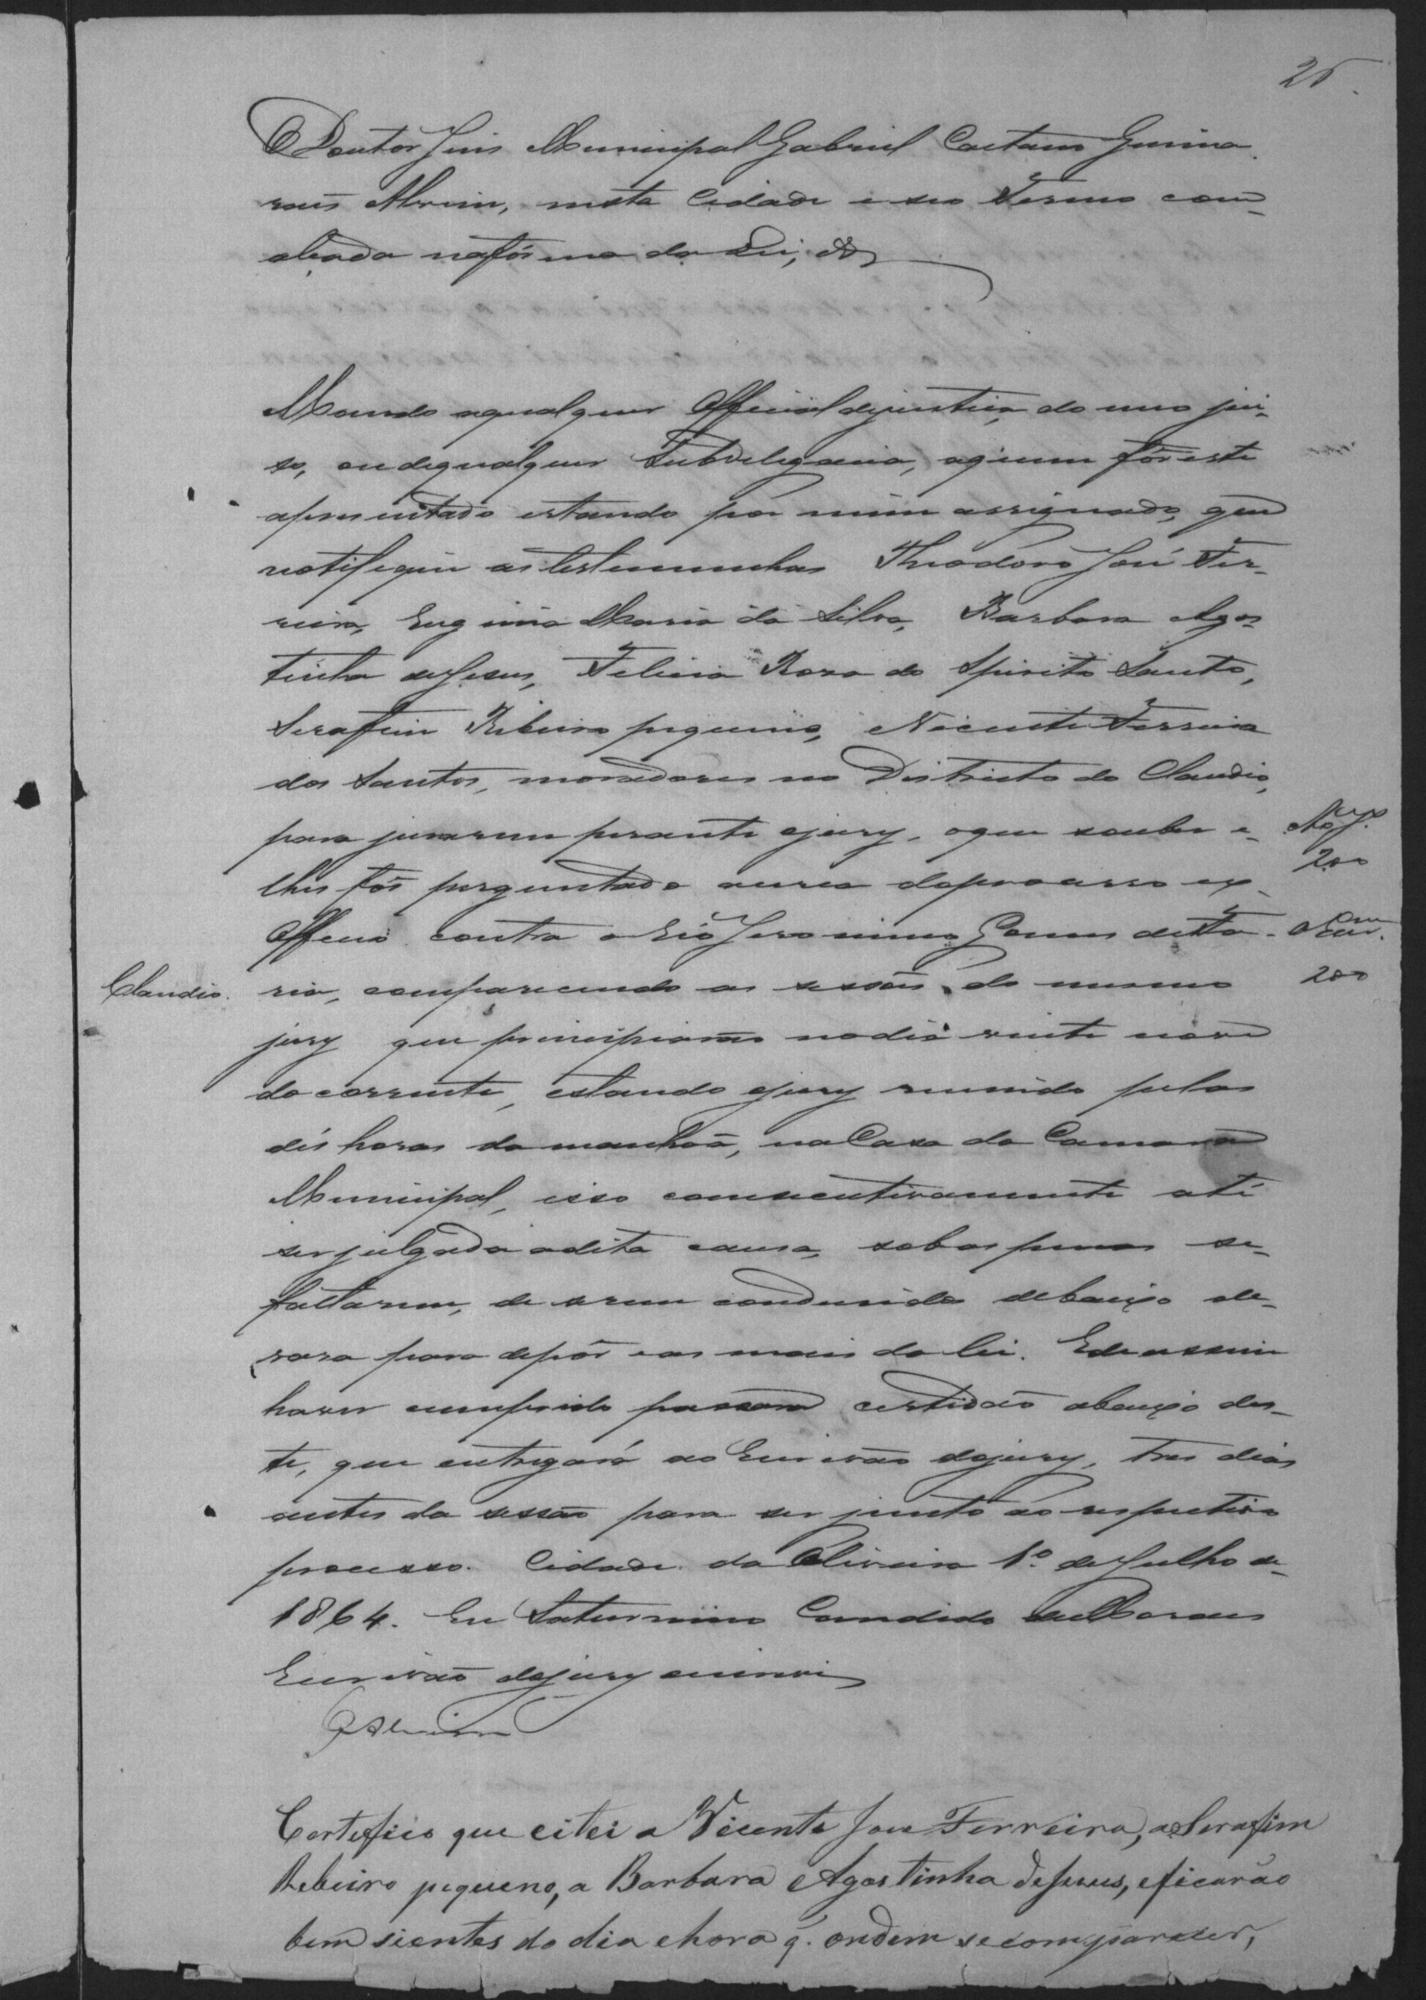 25.
O Doutor Juis Municipal Gabriel Caetano Guima
raês Alvim, nesta Cidade e seo Termo com-
alçada nafórma da Lei, &
Mando aqualquer Official dejustiça do meo jui-
so, ou dequalquer Subdelegacia, aquem fôr este
apresentado estando por mim assignado, que
notifique as testemunhas Theodoro José Fer-
reira, Eugenia Maria da Silva, Barbara Agos-
tinha deJesus, Felicia Roza do Spirito Santo,
Serafim Ribeiro pequeno, Vicente Ferreira
dos Santos, moradores no Districto do Claudio,
para jurarem perante ojury, oque souber e-
lhes fôr perguntado acerca doprocesso ex-
Officio contra o Réo Jeronimo Gomes
200
Claudio.
ria, comparecendo as sessoês do mesmo
200
jury que principiarão nodia vinte nove
do corrente, estando ojury reunido pelas
dés horas da manhaã, na Casa da Camara
Municipal, isso consecutivamente até
ser julgada adita causa, sobas penas se-
faltarem, de serem condusidas debaixo de-
vara para depôr e as mais da lei. Ede assim
haver cumprido passará certidaõ abaixo des-
te, que entregará ao Escrivaõ dojury, tres dias
antes da sessaõ para ser junto ao respectivo
processo. Cidade da Oliveira 1º. de Julho de
1864. Eu Saturnino Candido de Moraes
Escrivaõ dojury escrevi
GAlvim
Certefico que citei a Vicente Jose Ferreira, a Serafim
Rebeiro pequeno, a Barbara Agostinha deJesus, eficarão
bem sientes do dia ehora q. ondem se comparecer,